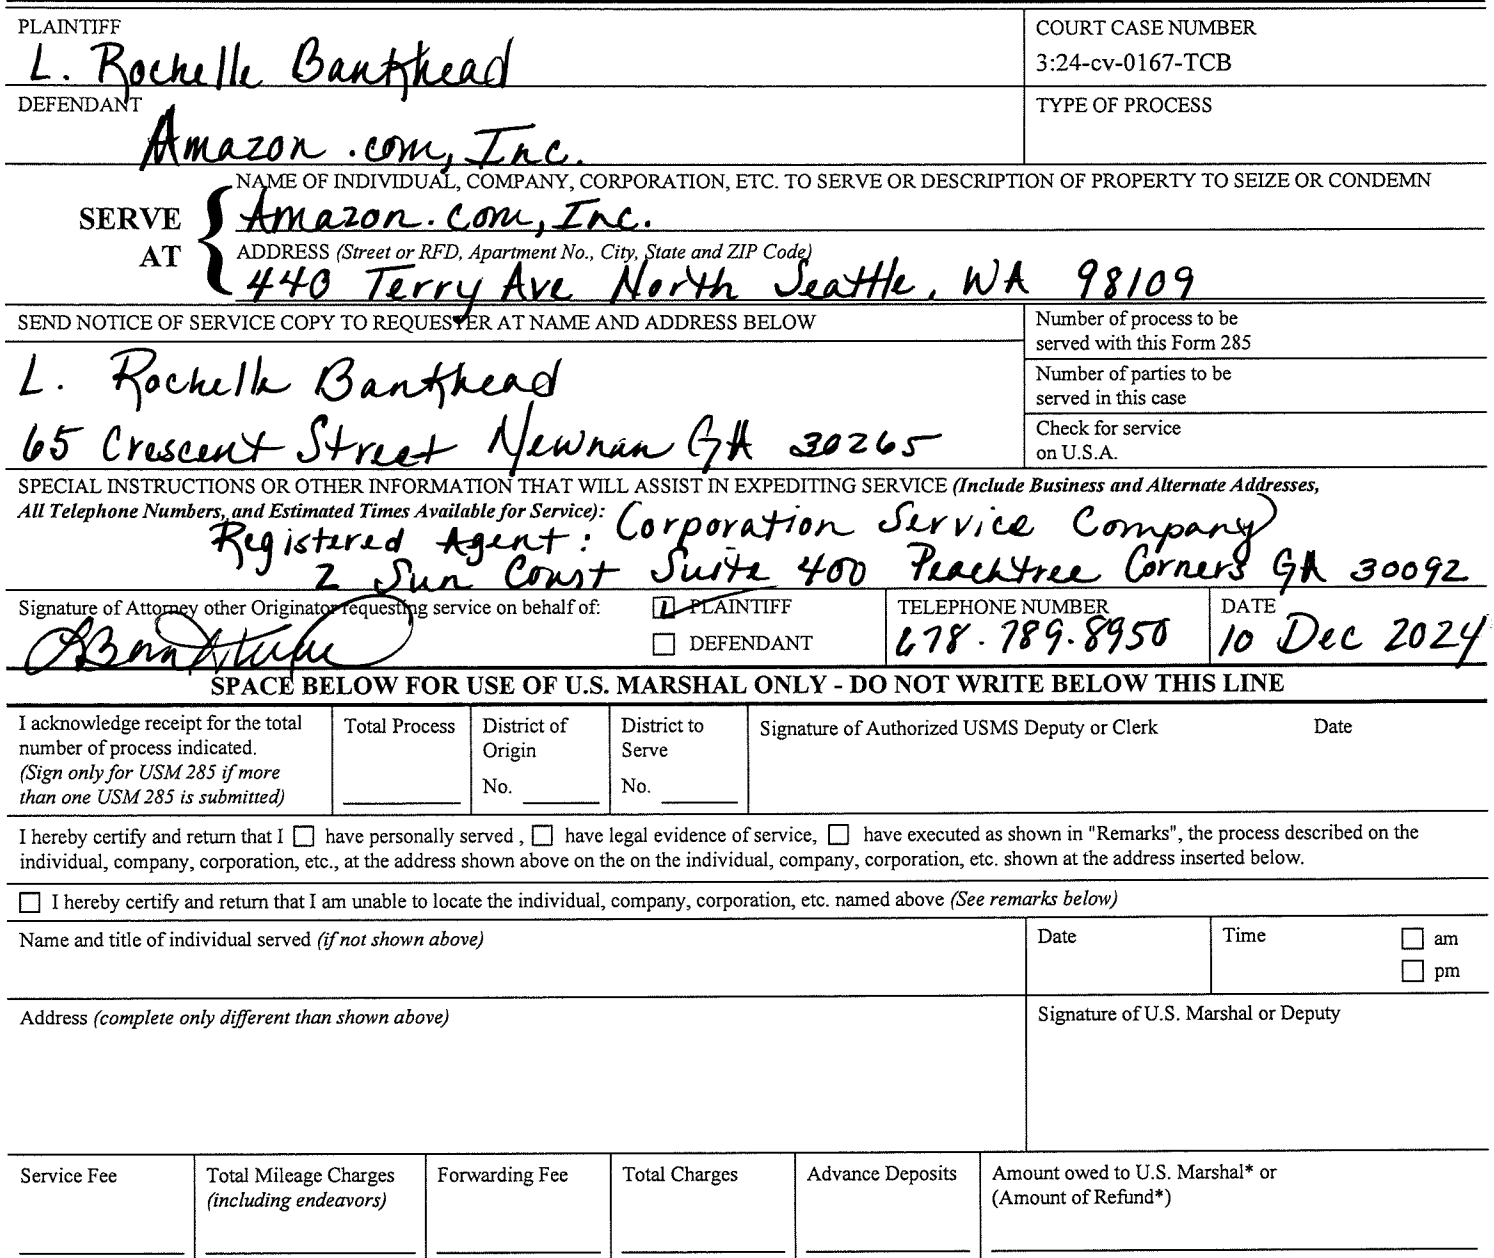 PLAINTIFF
L. Rochelle Bankhead
COURT CASE NUMBER
3:24-cv-0167-TCB
DEFENDANT
Amazon.com, Inc.
TYPE OF PROCESS
SERVE
AT
NAME OF INDIVIDUAL, COMPANY, CORPORATION, ETC. TO SERVE OR DESCRIPTION OF PROPERTY TO SEIZE OR CONDEMN
Amazon.com, Inc.
ADDRESS (Street or RFD, Apartment No., City, State and ZIP Code)
440 Terry Ave North Seattle, WA 98109
SEND NOTICE OF SERVICE COPY TO REQUESTER AT NAME AND ADDRESS BELOW
L. Rochelle Bankhead
65 Crescent Street Newnan GA 30265
Number of process to be
served with this Form 285
Number of parties to be
served in this case
Check for service
on U.S.A.
SPECIAL INSTRUCTIONS OR OTHER INFORMATION THAT WILL ASSIST IN EXPEDITING SERVICE (Include Business and Alternate Addresses,
All Telephone Numbers, and Estimated Times Available for Service):
Registered Agent: Corporation Service Company
2 Sun Court Suite 400 Peachtree Corners GA 30092
Signature of Attorney other Originator requesting service on behalf of:
PLAINTIFF
DEFENDANT
TELEPHONE NUMBER
678.789.8950
DATE
10 Dec 2024
SPACE BELOW FOR USE OF U.S. MARSHAL ONLY - DO NOT WRITE BELOW THIS LINE
I acknowledge receipt for the total
number of process indicated.
(Sign only for USM 285 if more
than one USM 285 is submitted)
Total Process
District of
Origin
No.
District to
Serve
No.
Signature of Authorized USMS Deputy or Clerk
Date
I hereby certify and return that I have personally served , have legal evidence of service, have executed as shown in "Remarks", the process described on the
individual, company, corporation, etc., at the address shown above on the on the individual, company, corporation, etc. shown at the address inserted below.
I hereby certify and return that I am unable to locate the individual, company, corporation, etc. named above (See remarks below)
Name and title of individual served (if not shown above)
Date
Time
am
pm
Address (complete only different than shown above)
Signature of U.S. Marshal or Deputy
Service Fee
Total Mileage Charges
(including endeavors)
Forwarding Fee
Total Charges
Advance Deposits
Amount owed to U.S. Marshal* or
(Amount of Refund*)